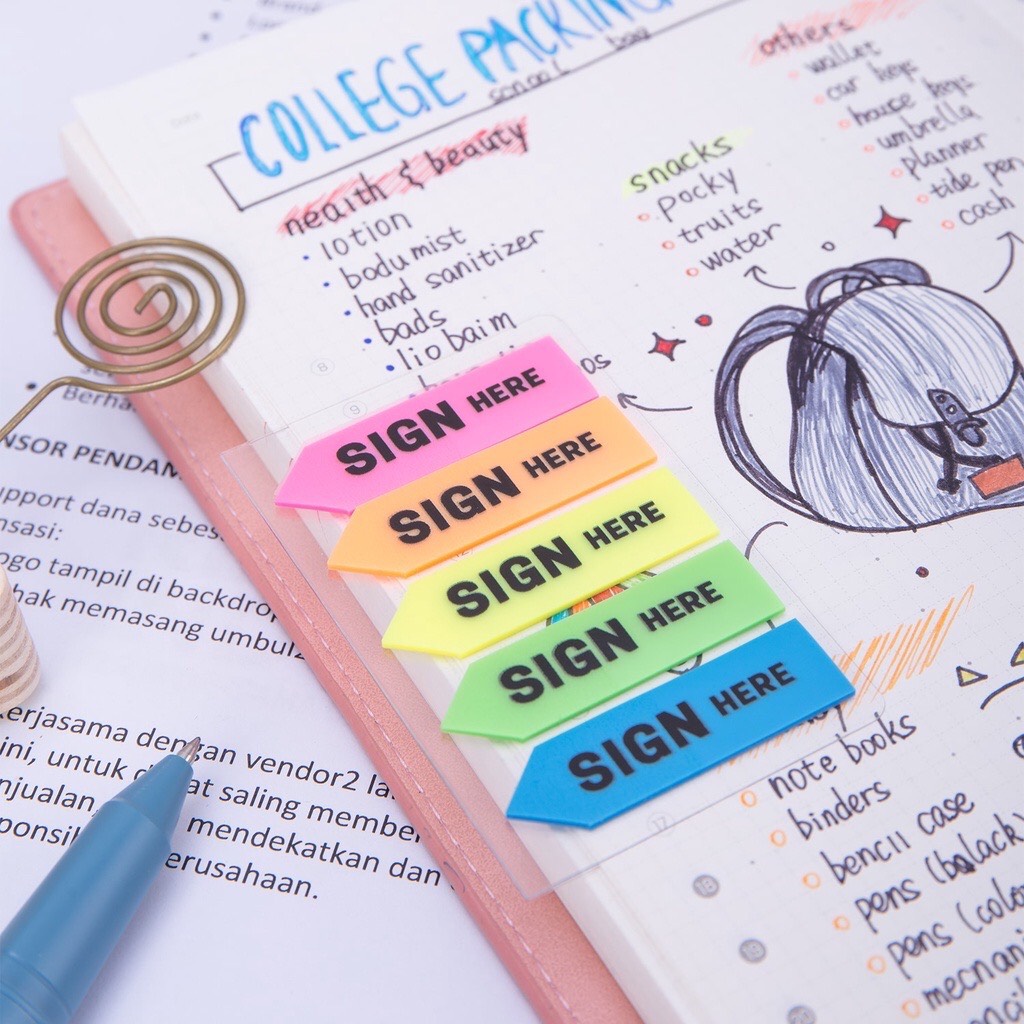 COLLEGE PACKING
school bag
health & beauty
lotion
body mist
hand sanitizer
pads
lip balm
snacks
pocky
fruits
water
others
wallet
car keys
house keys
umbrella
planner
tide pen
cash
SIGN HERE
SIGN HERE
SIGN HERE
SIGN HERE
SIGN HERE
note books
binders
pencil case
pens (balack)
pens (colo
mechani
8
9
17
18
19
NSOR PENDAM
upport dana sebes
nsasi:
ogo tampil di backdrop
hak memasang umbul
erjasama dengan vendor2 la
ini, untuk d at saling member
njualan, mendekatkan dan
ponsi erusahaan.
Berha